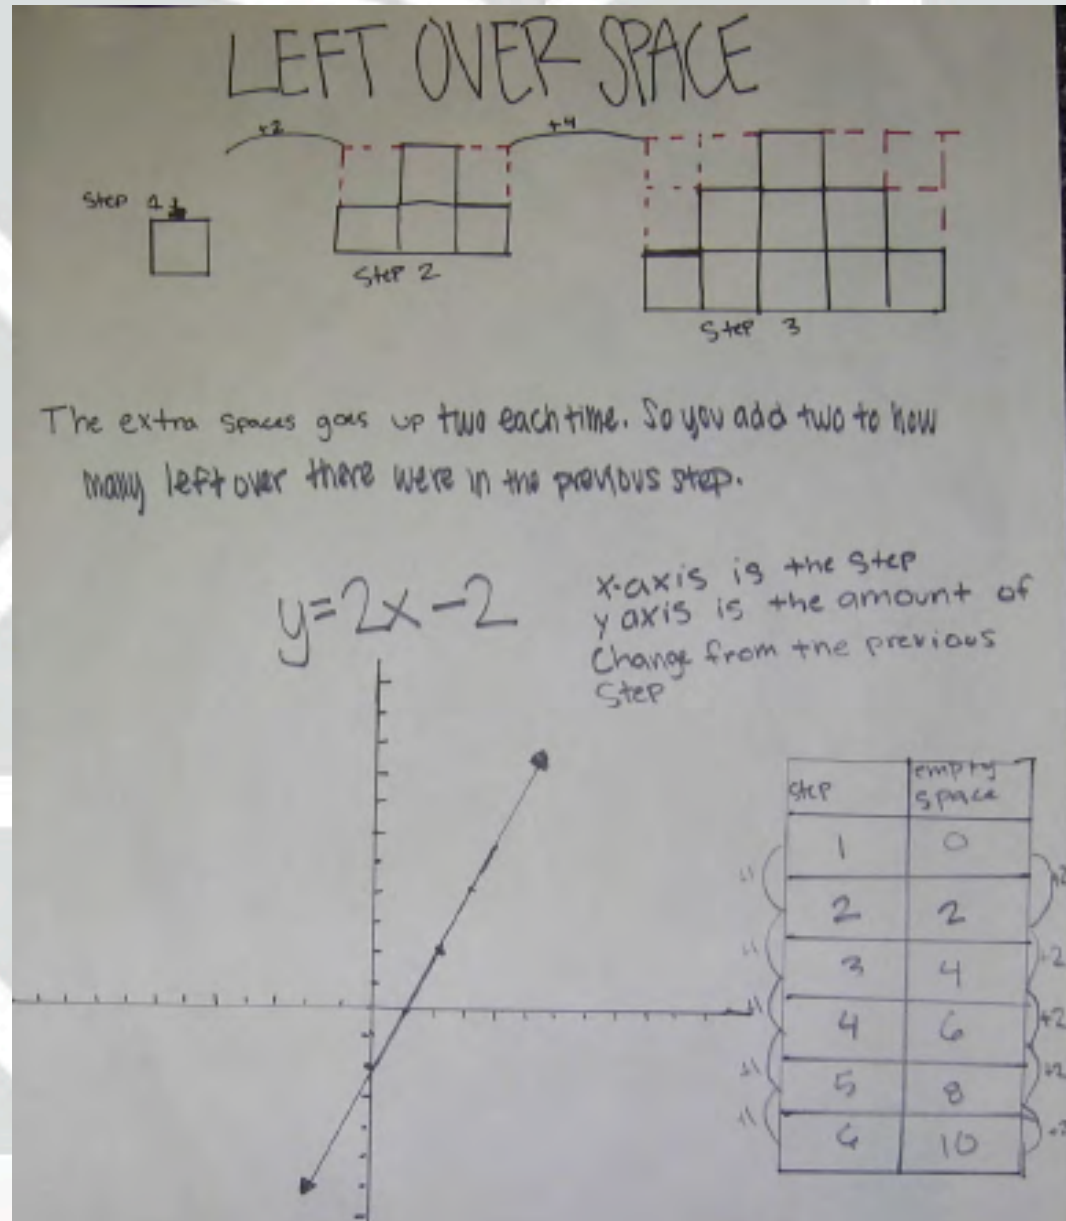 LEFT OVER SPACE
+2
+4
Step 1
Step 2
Step 3
The extra spaces goes up two each time. So you add two to how
many left over there were in the previous step.
y=2x-2
x-axis is the step
y axis is the amount of
Change from the previous
Step
step empty space
1 0
2 2
3 4
4 6
5 8
6 10
+1
+1
+1
+1
+1
+2
+2
+2
+2
+2